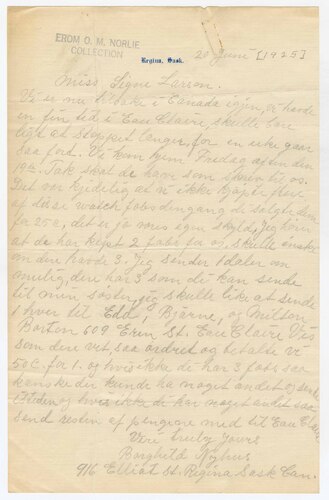 FROM O. M. NORLIE
COLLECTION
Regina, Sask.
20 Juni [1925]
Miss Signe Larson.
Vi er nu tilbake i Canada igjen, vi havde
en fin tid i Eau Claire, skulle bare
likt at stoppet længer, for en uke gaar
saa fort. Vi kom hjem Fredag aften den
19de. Tak skal de have som skrev til os.
Det var kjedelig at vi ikke kjøpte flere
af disse watch fobs dengang de solgte dem
for 25¢, det er jo min egen skyld, Jeg hører
at de har kjøpt 2 fobs for os, skulle ønske
at de havde 3. Jeg sender 1 daler om
mulig, den har 3 som de kan sende
til min søster, jeg skulle like at sende
1 hver til Edd, Bjarne, og Milton
Borton 609 Erin St. Eau Claire Wis
som dere vet, saa ordret og betalte vi
50¢ for 1. og hvis ikke de har 3 fobs saa
kanske du kunde ha noget andet og sende
og hvis ikke de har noget andet saa
send resten af pengene med til Eau Claire
Very truly Yours
Borghild Nyhus
916 Elliot St. Regina Sask Can.